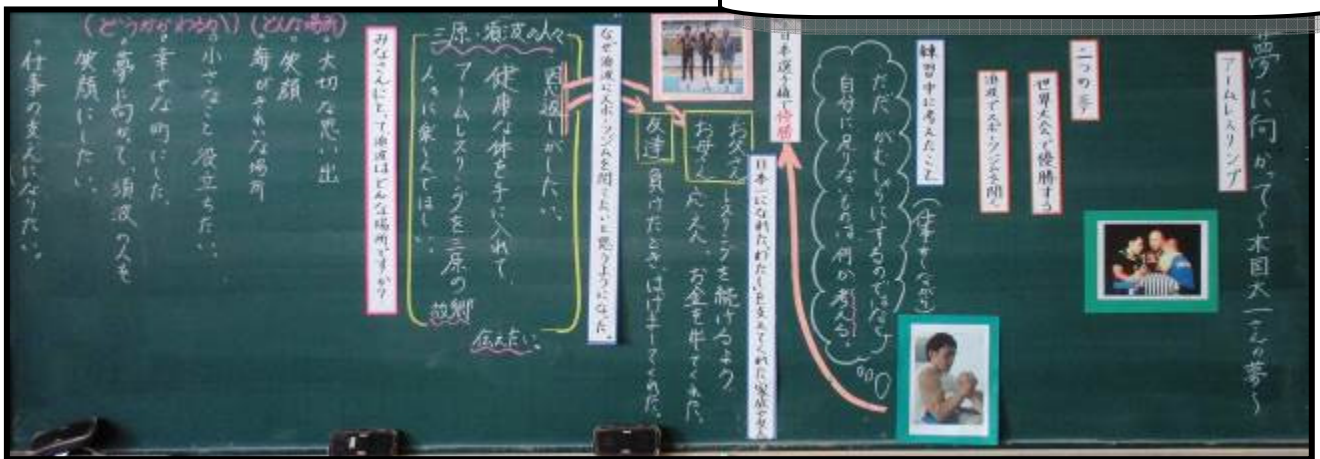 夢に向かって〜末国太一さんの夢〜
アームレスリング
二つの夢
世界大会で優勝する
須波でスポーツジムを開く
練習中に考えたこと
(仕事をしながら)
ただ、がむしゃらにするのではなく、
自分に足りないものは何か考える。
日本選手権で優勝
日本一になれたわたしを支えてくれた家族や友人
お父さん
お母さん
レスリングを続けるよう
お金を出してくれた。
友達
負けたとき、はげましてくれた。
なぜ須波にスポーツジムを開きたいと思うようになった。
三原・須波の人々
恩返しがしたい。
健康な体を手に入れて
アームレスリングを三原の
人々に楽しんでほしい。
故郷
伝えたい。
みなさんにとって須波はどんな場所ですか?
(どんな場所)
・大切な思い出
・笑顔
・海がきれいな場所
・小さなこと役立ちたい。
・幸せな町にした
・夢に向かって、須波の人を
笑顔にしたい。
・仕事の支えになりたい。